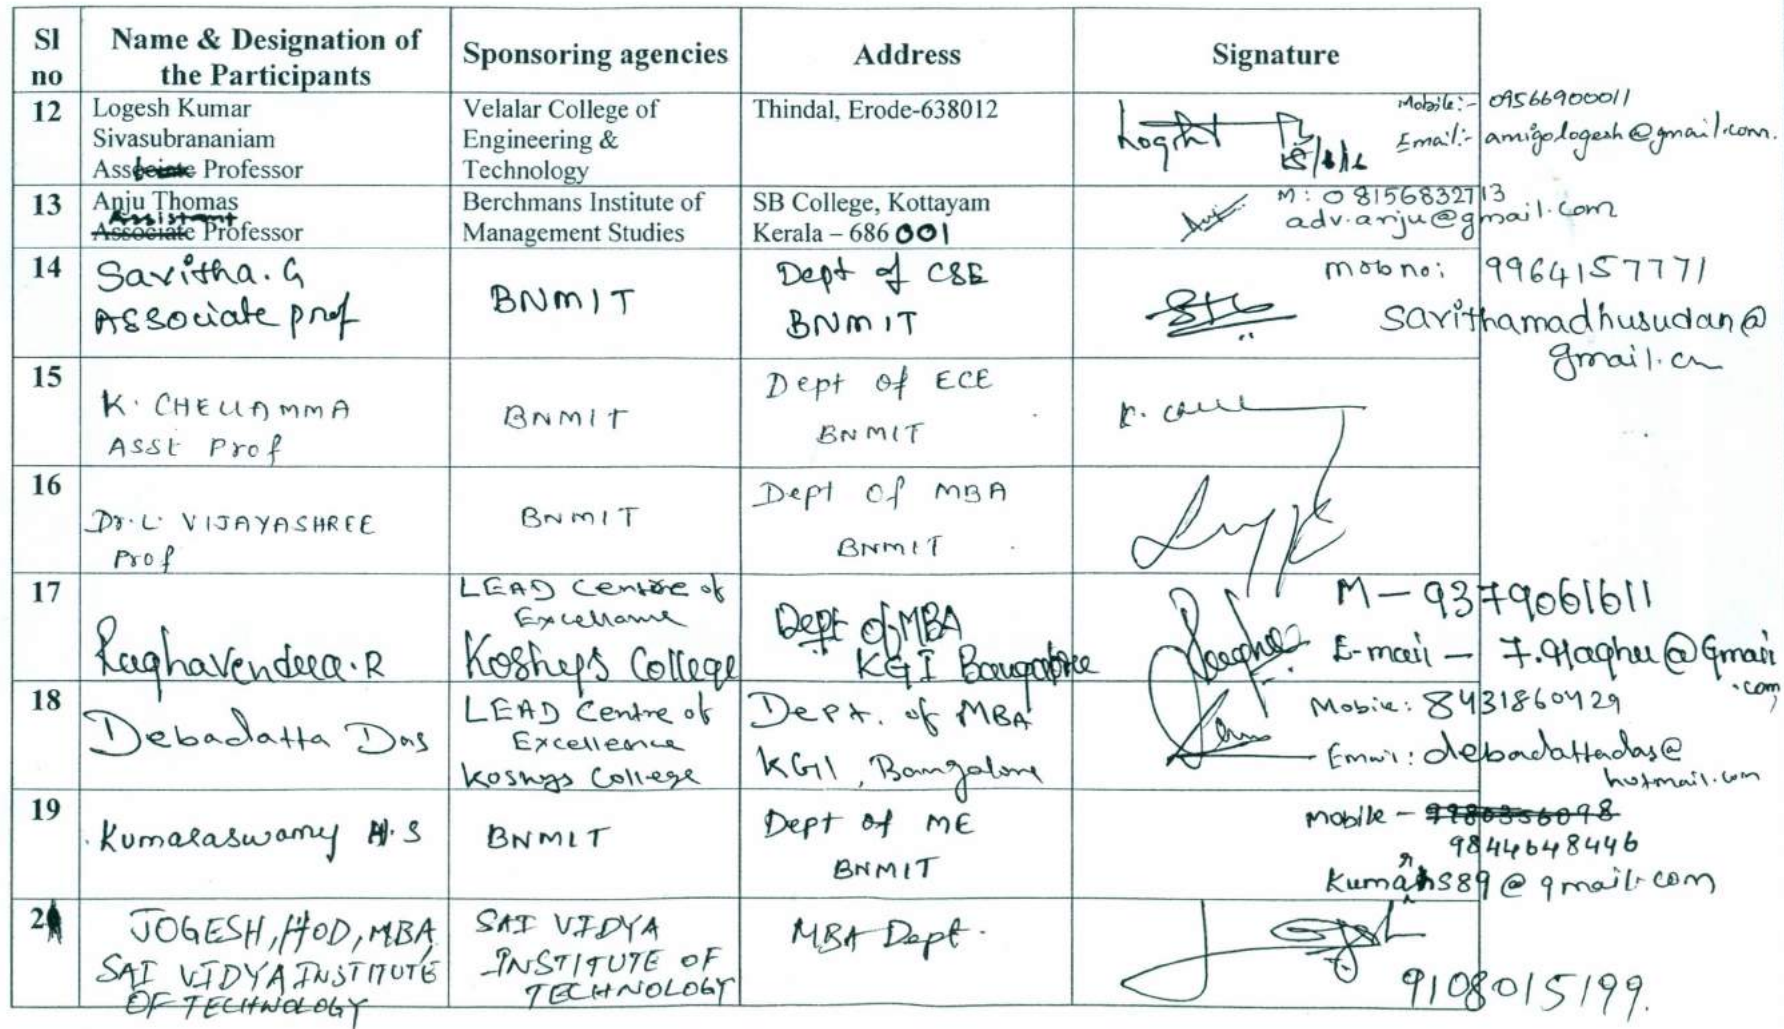 Sl no
Name & Designation of the Participants
Sponsoring agencies
Address
Signature
12
Logesh Kumar
Sivasubrananiam
Professor
Velalar College of
Engineering &
Technology
Thindal, Erode-638012
Mobile:- 09566900011
Email:- amigologesh@gmail.com.
13
Anju Thomas
Assistant
Associate Professor
Berchmans Institute of
Management Studies
SB College, Kottayam
Kerala – 686 001
M: 08156832713
adv.anju@gmail.com
14
Savitha. G
Associate prof
BNMIT
Dept of CSE
BNMIT
mob no: 9964157771
savithamadhusudan@
gmail.
15
K. CHELLAMMA
Asst Prof
BNMIT
Dept of ECE
BNMIT
16
Dr. L. VIJAYASHREE
Prof
BNMIT
Dept Of MBA
BNMIT
17
Raghavendra.R
LEAD Centre of
Koshys College
Dept of MBA
KGI Bangalore
M - 9379061611
E-mail -
18
Debadatta Das
LEAD Centre of
Excellence
Koshys College
Dept. of MBA
KGI, Bangalore
Mobile: 8431860429
Email: debadattadas@
hotmail.com
19
Kumaraswamy H.S
BNMIT
Dept of ME
BNMIT
Mobile - 9980356098
9844648446
@gmail.com
JOGESH, HOD, MBA,
SAI VIDYA INSTITUTE
OF TECHNOLOGY
SAI VIDYA
INSTITUTE OF
TECHNOLOGY
MBA Dept.
9108015199.